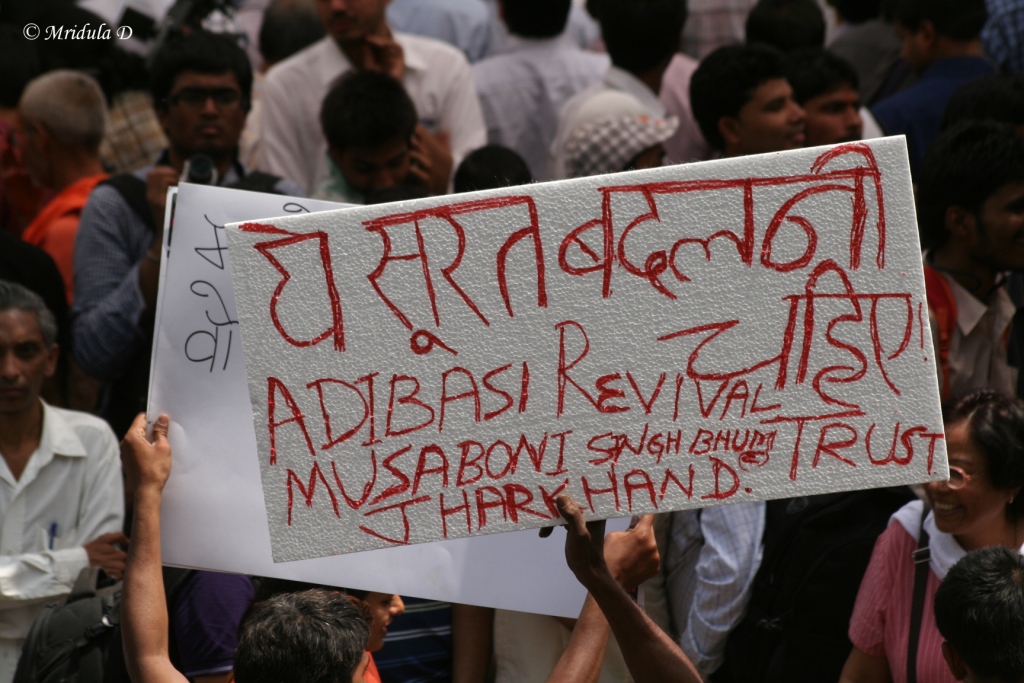 © Mridula D
ये सूरत बदलनी
चाहिए!
ADIBASI REVIVAL
MUSABONI SINGHBHUM TRUST
JHARKHAND.